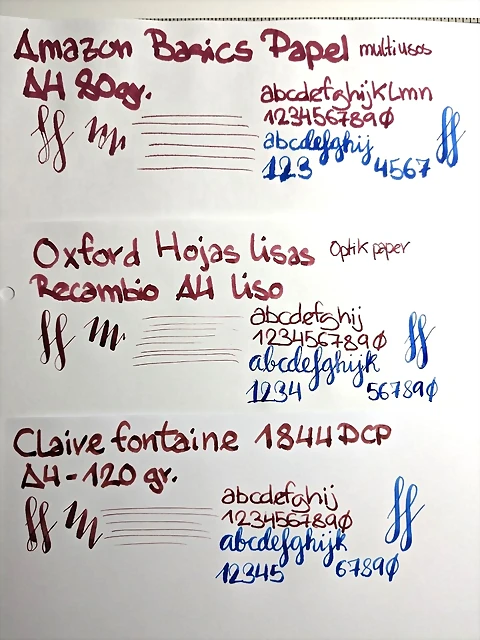 Amazon Basics Papel multiusos
A4 80gr.
abcdefghijklmn
1234567890
ff m
abcdefghij
ff
123 4567
Oxford Hojas lisas Optik paper
Recambio A4 liso
abcdefghij
ff m
1234567890
ff
abcdefghijk
1234 567890
Claive fontaine 1844 DCP
A4-120 gr.
abcdefghij
ff m
1234567890
ff
abcdefghijk
12345 67890